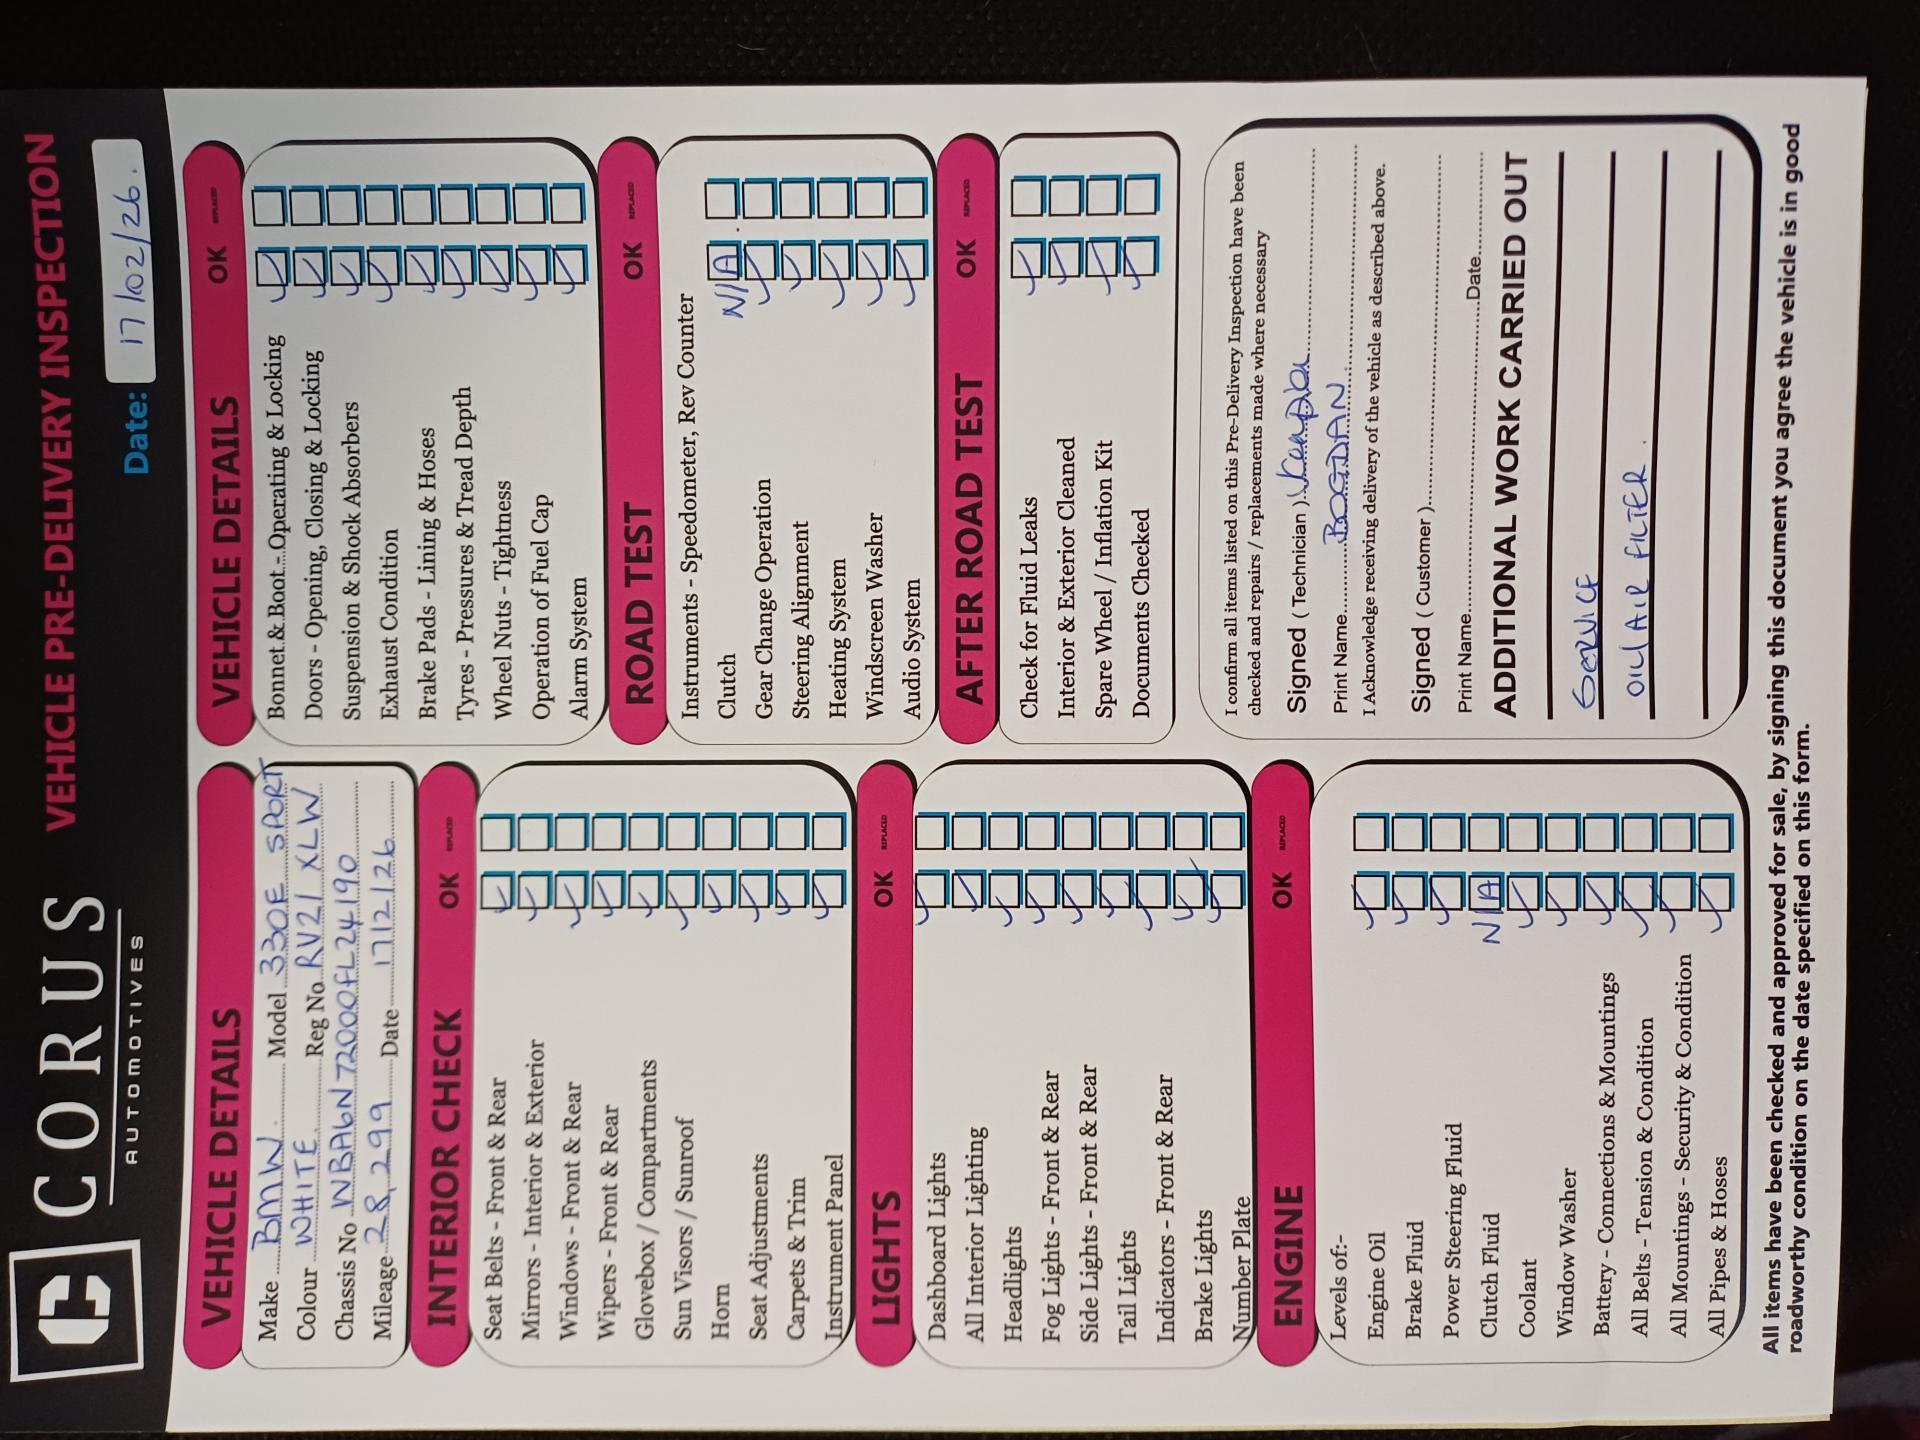 CORUS
AUTOMOTIVES
VEHICLE PRE-DELIVERY INSPECTION
Date: 17/02/26.
VEHICLE DETAILS
Make BMW. Model 330E SPORT
Colour WHITE Reg No RV21 XLW
Chassis No WBA6N72000FL24190
Mileage 28,299 Date 17/2/26
INTERIOR CHECK OK REPLACED
Seat Belts - Front & Rear
Mirrors - Interior & Exterior
Windows - Front & Rear
Wipers - Front & Rear
Glovebox / Compartments
Sun Visors / Sunroof
Horn
Seat Adjustments
Carpets & Trim
Instrument Panel
LIGHTS OK REPLACED
Dashboard Lights
All Interior Lighting
Headlights
Fog Lights - Front & Rear
Side Lights - Front & Rear
Tail Lights
Indicators - Front & Rear
Brake Lights
Number Plate
ENGINE OK REPLACED
Levels of:-
Engine Oil
Brake Fluid
Power Steering Fluid
Clutch Fluid N/A
Coolant
Window Washer
Battery - Connections & Mountings
All Belts - Tension & Condition
All Mountings - Security & Condition
All Pipes & Hoses
VEHICLE DETAILS OK REPLACED
Bonnet & Boot - Operating & Locking
Doors - Opening, Closing & Locking
Suspension & Shock Absorbers
Exhaust Condition
Brake Pads - Lining & Hoses
Tyres - Pressures & Tread Depth
Wheel Nuts - Tightness
Operation of Fuel Cap
Alarm System
ROAD TEST OK REPLACED
Instruments - Speedometer, Rev Counter
Clutch N/A
Gear Change Operation
Steering Alignment
Heating System
Windscreen Washer
Audio System
AFTER ROAD TEST OK REPLACED
Check for Fluid Leaks
Interior & Exterior Cleaned
Spare Wheel / Inflation Kit
Documents Checked
I confirm all items listed on this Pre-Delivery Inspection have been
checked and repairs / replacements made where necessary
Signed ( Technician )
Print Name BOGDAN
I Acknowledge receiving delivery of the vehicle as described above.
Signed ( Customer )
Print Name Date
ADDITIONAL WORK CARRIED OUT
SERVICE
OIL/ AIR FILTER.
All items have been checked and approved for sale, by signing this document you agree the vehicle is in good
roadworthy condition on the date specified on this form.